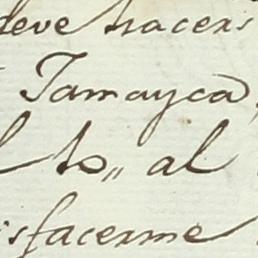 deve hacers
Jamayca,
l to,, al
isfacerme